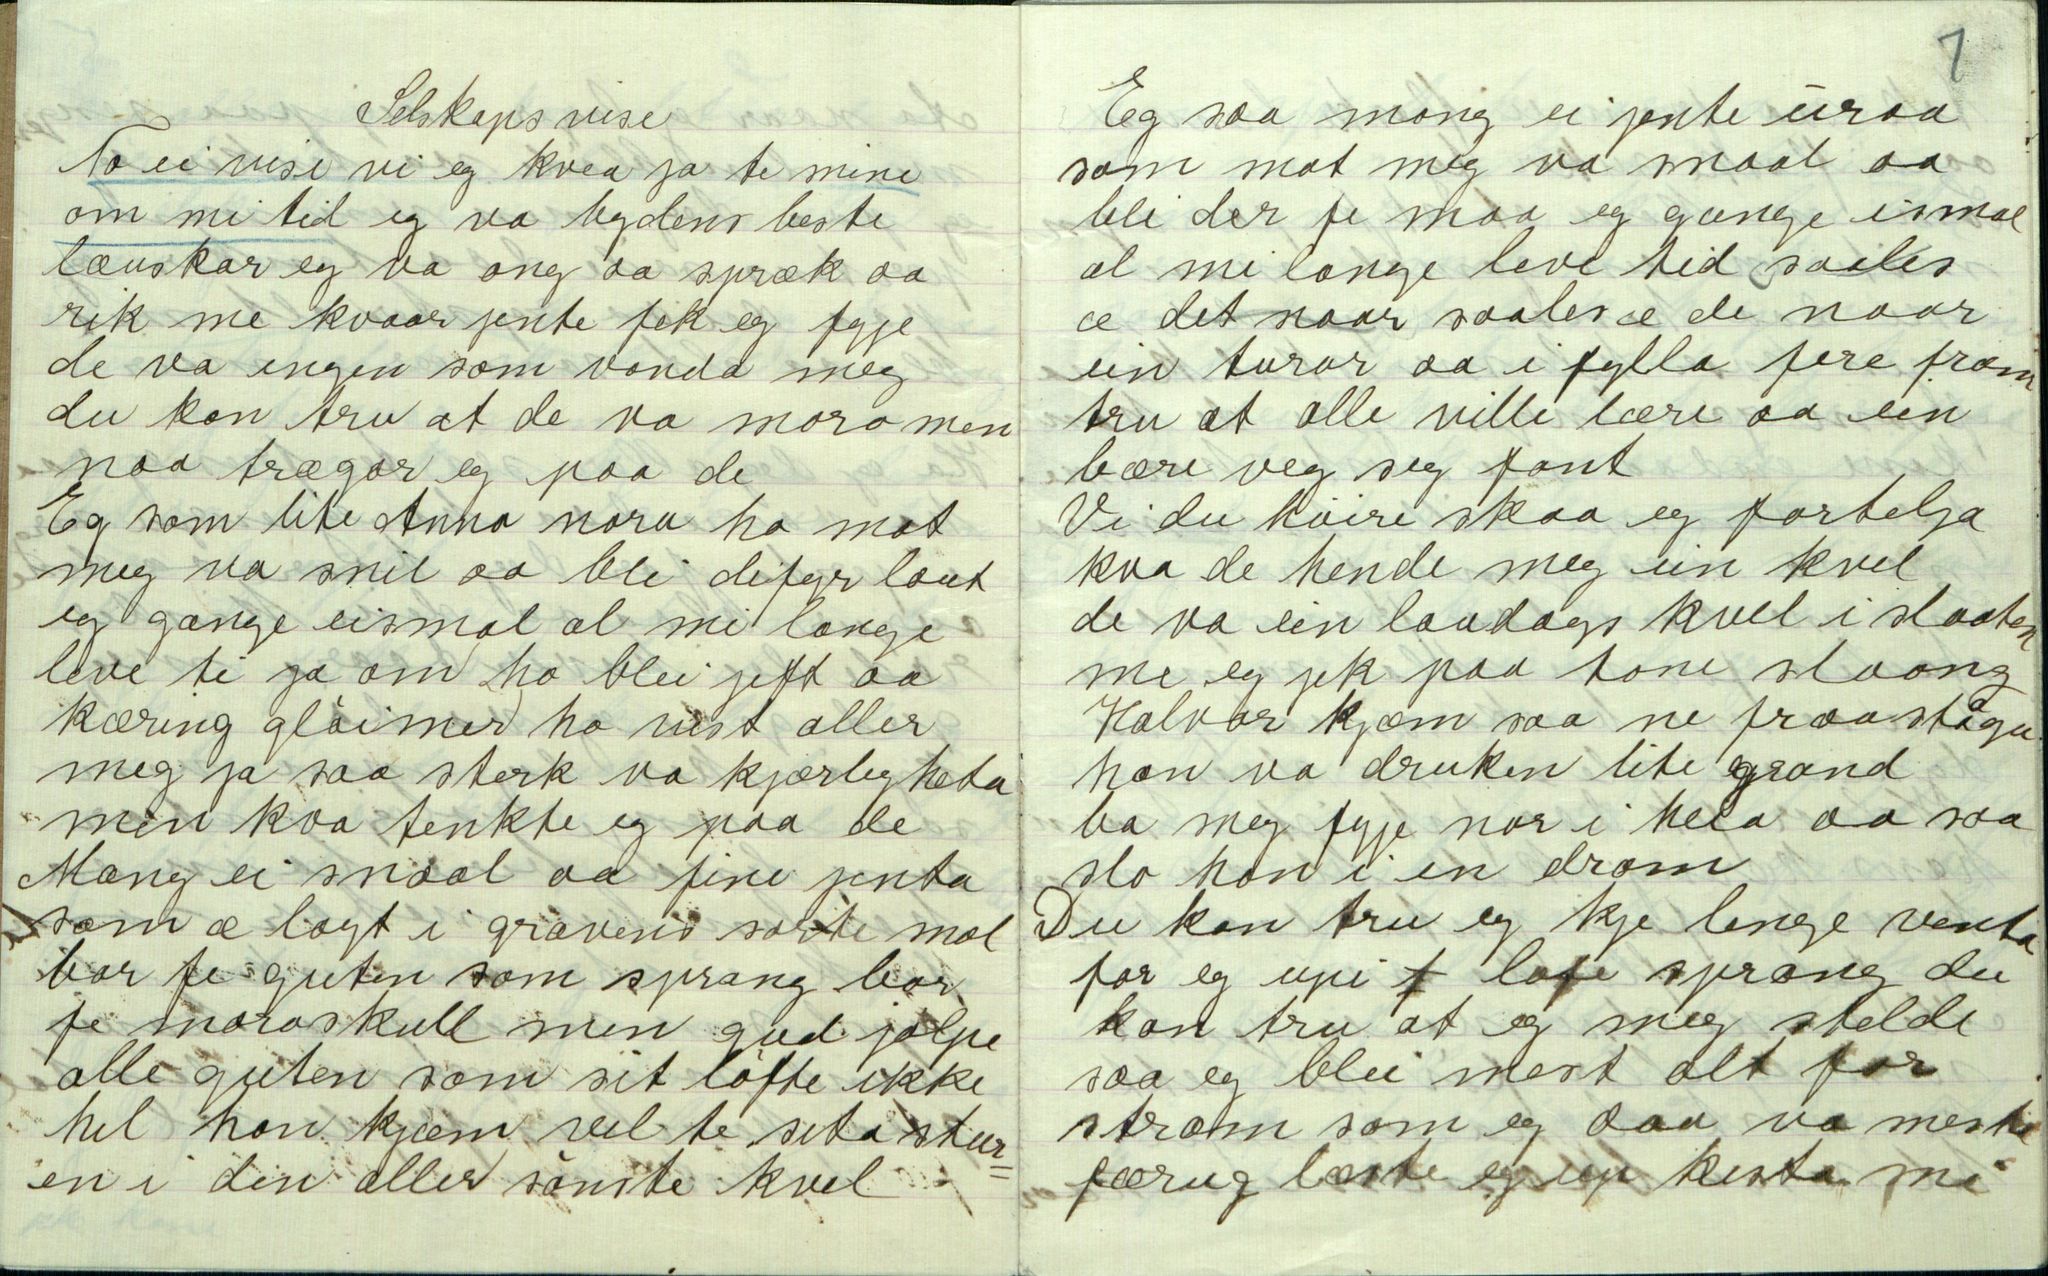 Selskapsvise
No ei vise vi eg kvea ja te mine
om mi tid eg va bygdens beste
læuskar eg va ong aa spræk aa
rik me kvaar jente fek eg fygje
de va engen som vonda meg
du kan tru at de va moro men
naa trægar eg paa de
Eg som lite Anna nara ho mot
meg va snil aa blei difyr laut
eg gange eismal al mi lange
leve ti ja om ho blei jeft aa
kæring glöimer ho vist aller
meg ja saa sterk va kjærligheta
men kva tenkte eg paa de
Mang ei snaal aa fine jenta
som æ lagt i gravens sorte mol
bar fe guten som sprang bar
fe moroskull men gud jolpe
alle guten som sit löfte ikke
hel han kjæm vel te seta stur=
en i den aller sönste kvel
7
Eg saa mang ei jente üraa
som mot meg va snaal aa
bli der fe maa eg gange eismal
al mi lange leve tid saales
æ det naar saales æ de naar
ein turar aa i fylla fere fram
tru at alle ville lære aa ein
bære veg seg fant
Vi du höire skaa eg fortelja
kva de hende meg ein kvel
de va ein laudags kvel i slaaten
me eg jek paa tone slaong
Halvor kjæm saa ne fraa stågu
han va druken lite grand
ba meg fygje nor i heia aa saa
slo han i en dram
Du kan tru eg kje lenge venta
for eg upi lofe sprang du
kan tru at eg meg stelde
saa eg blei mest alt for
stram som eg daa va meste
færug læste eg up kesta mi